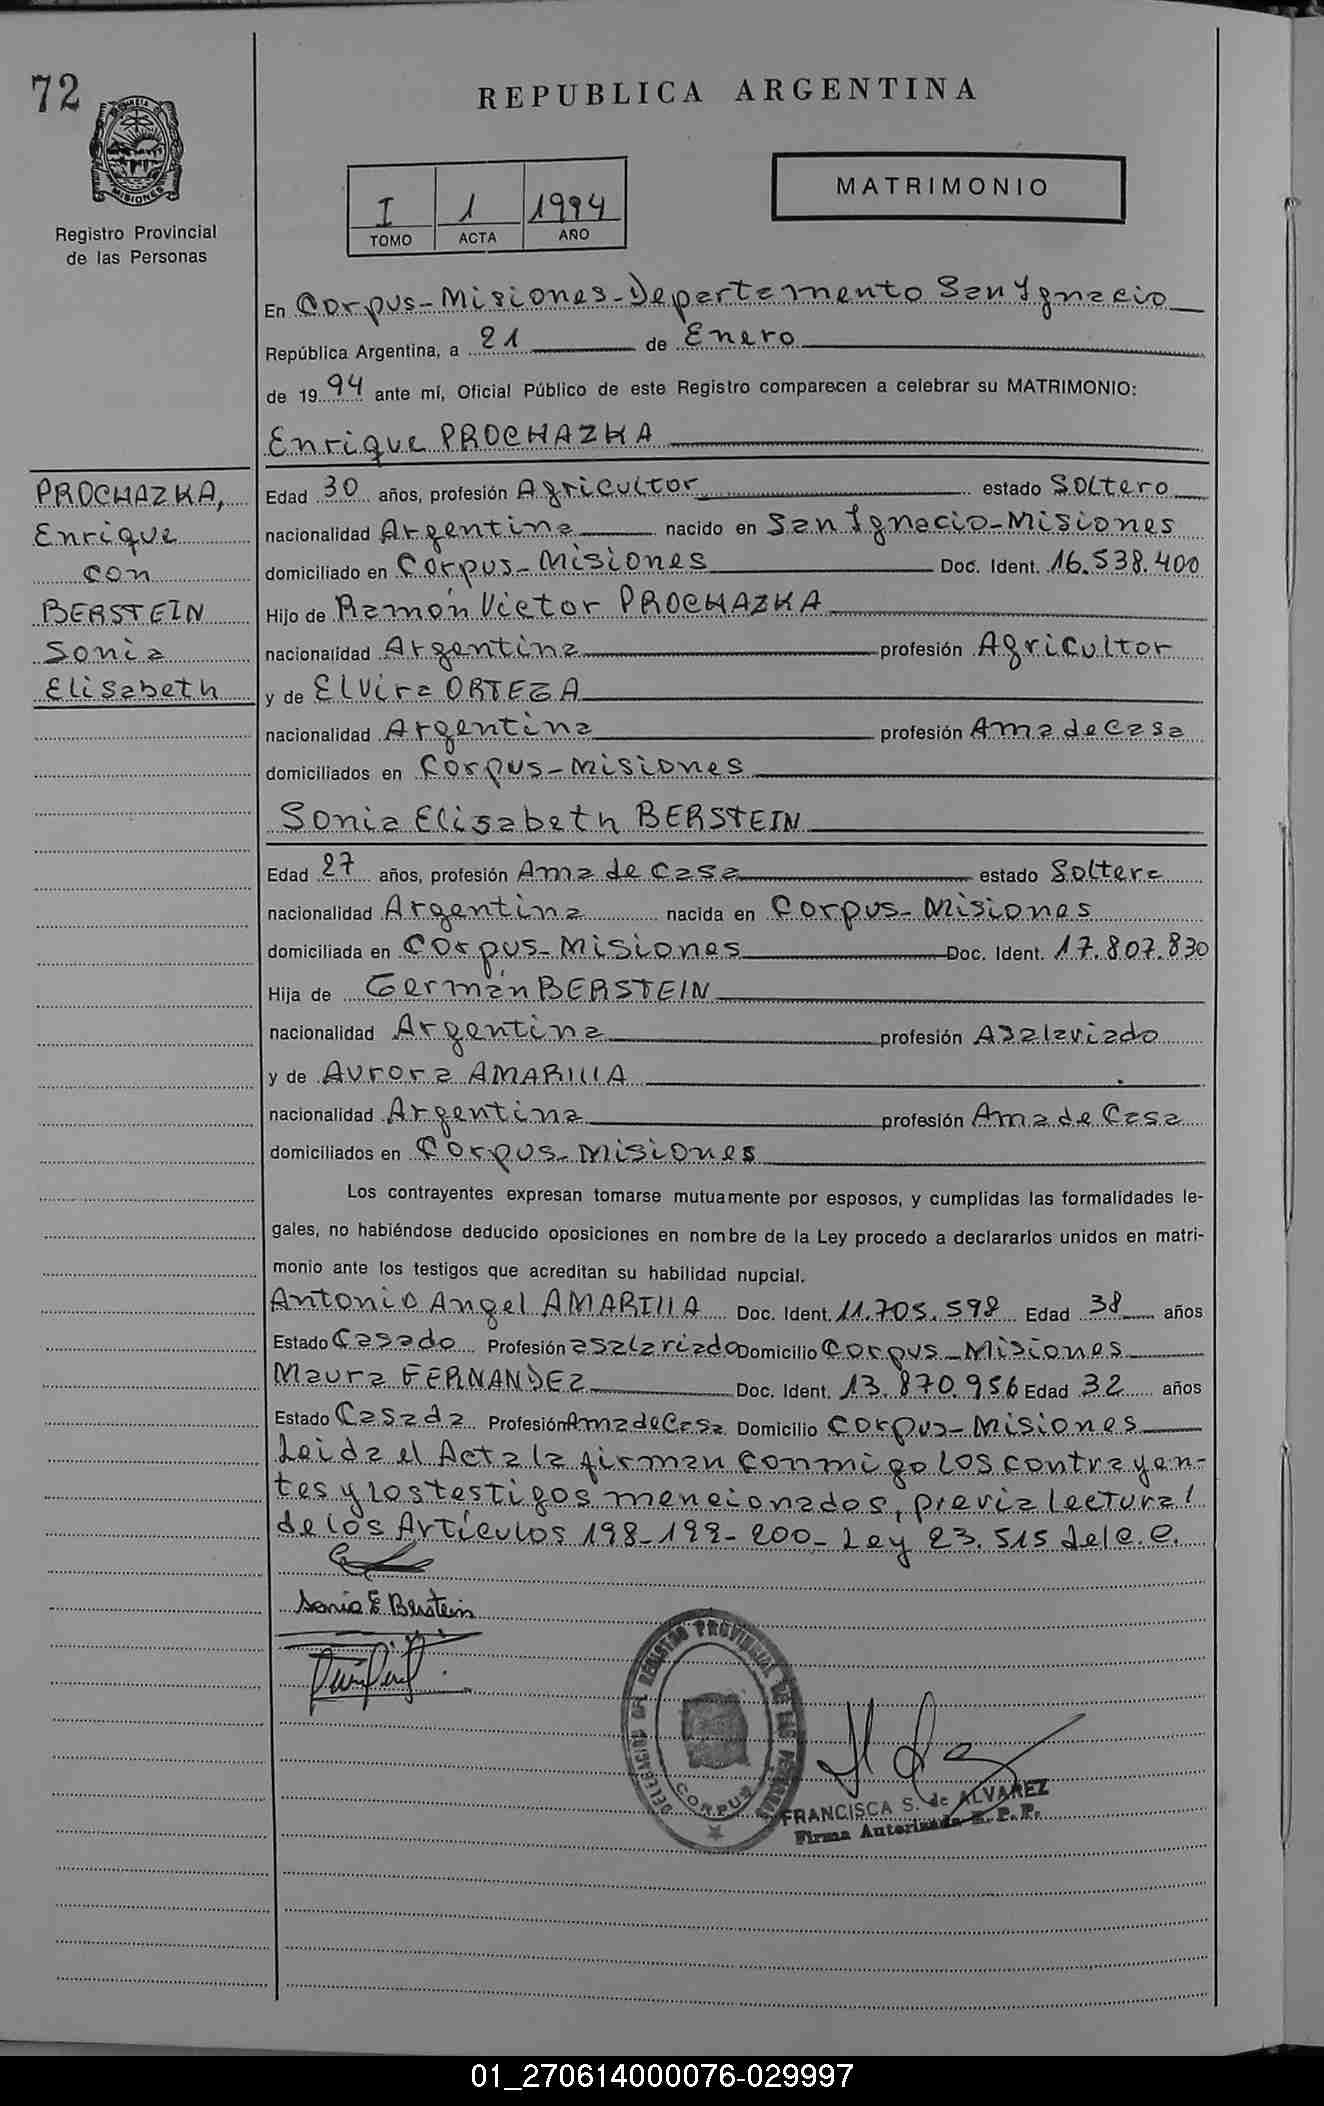 72
REPUBLICA ARGENTINA
MISIONES
Registro Provincial
de las Personas
MATRIMONIO
I 1 1994
TOMO ACTA AÑO
En Corpus-Misiones-Departamento San Ignacio
República Argentina, a 21 de Enero
de 1994 ante mí, Oficial Público de este Registro comparecen a celebrar su MATRIMONIO:
Enrique PROCHAZKA
PROCHAZKA,
Enrique
con
BERSTEIN
Sonia
Elisabeth
Edad 30 años, profesión Agricultor estado Soltero
nacionalidad Argentina nacido en San Ignacio-Misiones
domiciliado en Corpus-Misiones Doc. Ident. 16.538.400
Hijo de Ramón Victor PROCHAZKA
nacionalidad Argentina profesión Agricultor
y de Elvira ORTEGA
nacionalidad Argentina profesión Ama de Casa
domiciliados en Corpus-Misiones
Sonia Elisabeth BERSTEIN
Edad 27 años, profesión Ama de Casa estado Soltera
nacionalidad Argentina nacida en Corpus-Misiones
domiciliada en Corpus-Misiones Doc. Ident. 17.807.830
Hija de Germán BERSTEIN
nacionalidad Argentina profesión Asalariado
y de Aurora AMARILLA
nacionalidad Argentina profesión Ama de Casa
domiciliados en Corpus-Misiones
Los contrayentes expresan tomarse mutuamente por esposos, y cumplidas las formalidades le-
gales, no habiéndose deducido oposiciones en nombre de la Ley procedo a declararlos unidos en matri-
monio ante los testigos que acreditan su habilidad nupcial.
Antonio Angel AMARILLA Doc. Ident. 11.705.598 Edad 38 años
Estado Casado Profesión asalariado Domicilio Corpus-Misiones
Maura FERNANDEZ Doc. Ident. 13.870.956 Edad 32 años
Estado Casada Profesión Ama de Casa Domicilio Corpus-Misiones
Leida el Acta la firman conmigo los contrayen-
tes y los testigos mencionados, previa lectura
de los Artículos 198-199-200-Ley 23.515 del C.C.
Sonia E Berstein
DELEGACION DEL REGISTRO PROVINCIAL DE LAS PERSONAS
CORPUS
FRANCISCA S. de ALVAREZ
Firma Autorizada R.P.P.
01_270614000076-029997